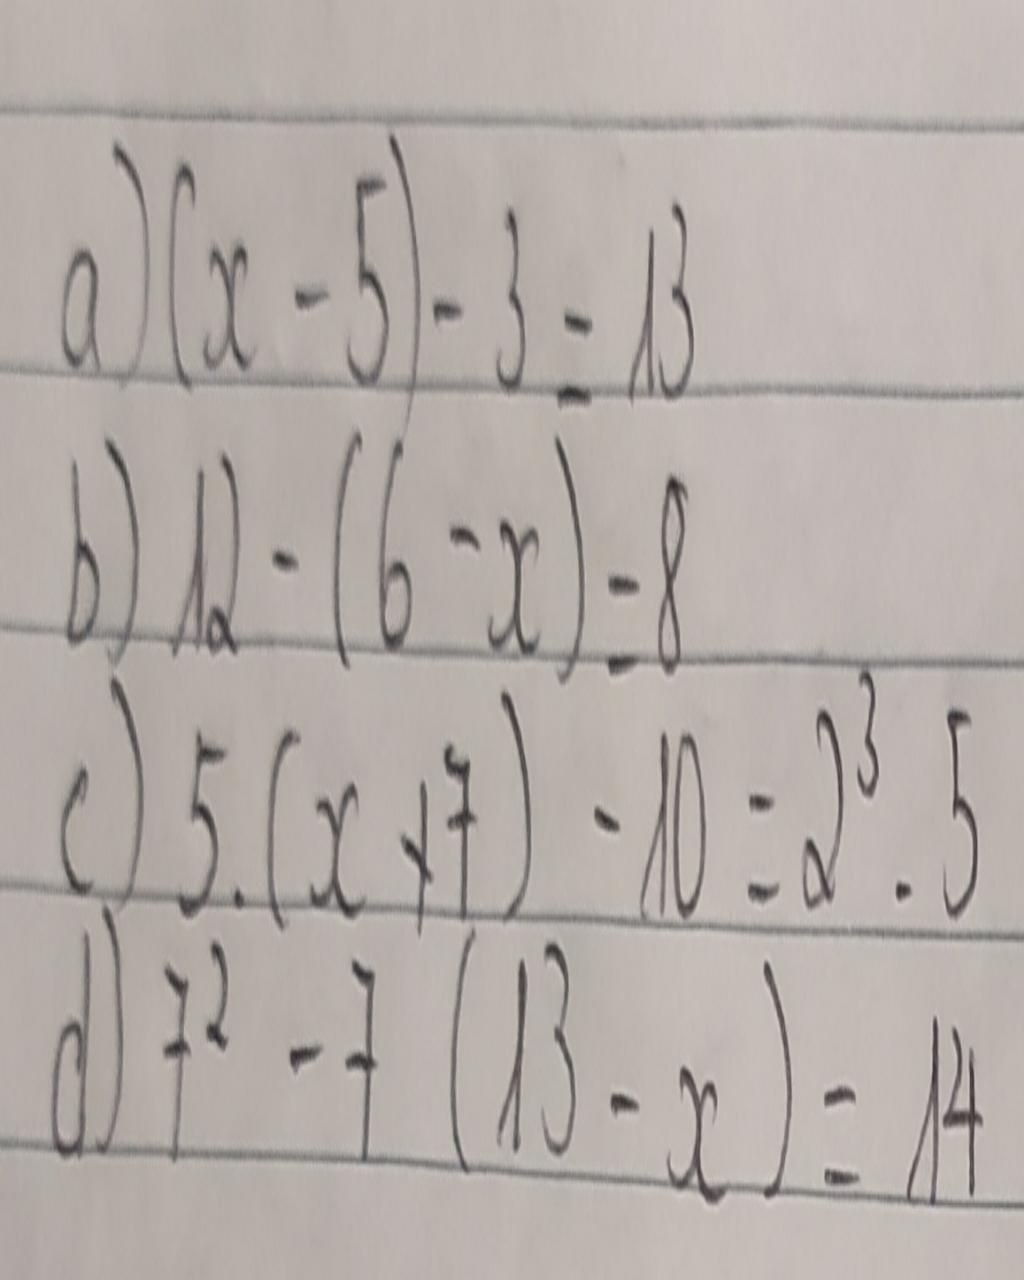 a) (x - 5) - 3 = 13
b) 12 - (6 - x) = 8
c) 5.(x + 7) - 10 = 2³ . 5
d) 7² - 7 (13 - x) = 14